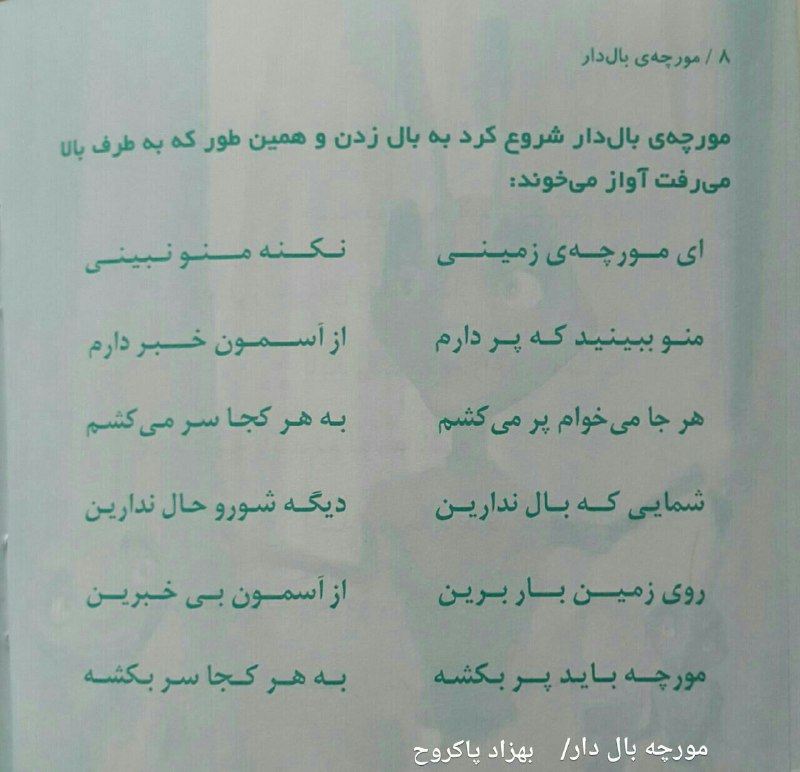 ۸ / مورچه‌ی بال‌دار
مورچه‌ی بال‌دار شروع کرد به بال زدن و همین طور که به طرف بالا
می‌رفت آواز می‌خوند:
ای مورچه‌ی زمینی نکنه منو نبینی
منو ببینید که پر دارم از آسمون خبر دارم
هر جا می‌خوام پر می‌کشم به هر کجا سر می‌کشم
شمایی که بال ندارین دیگه شورو حال ندارین
روی زمین بار برین از آسمون بی خبرین
مورچه باید پر بکشه به هر کجا سر بکشه
مورچه بال دار/ بهزاد پاکروح